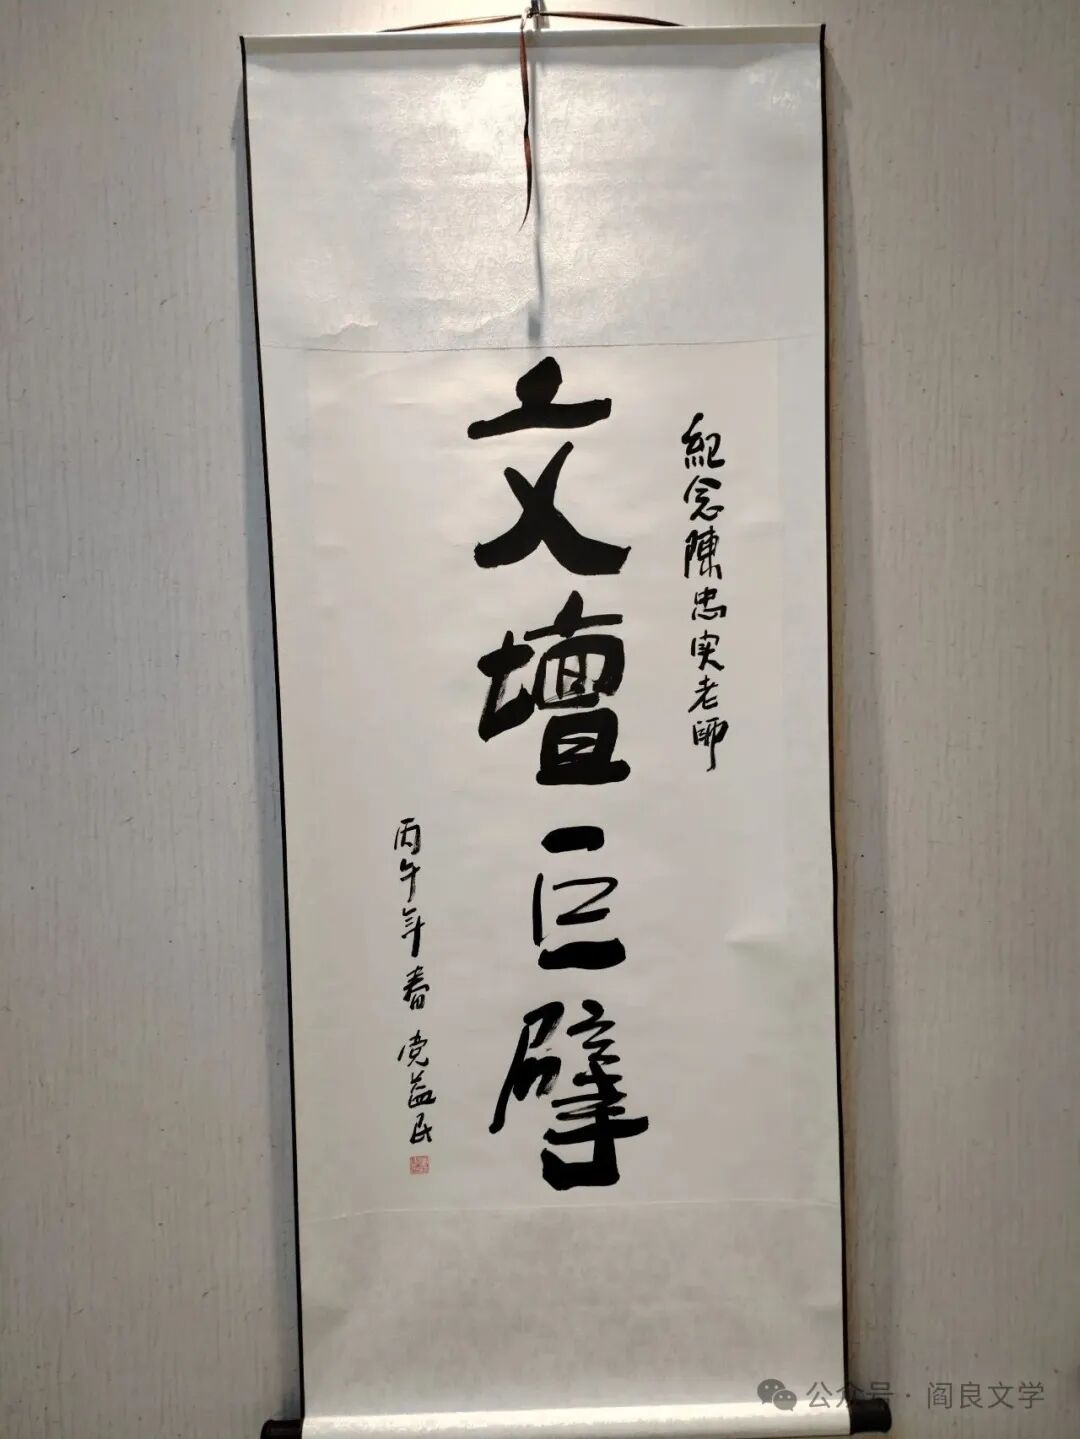 紀念陳忠实老師
文壇巨擘
丙午年春 党益民
公众号·阎良文学